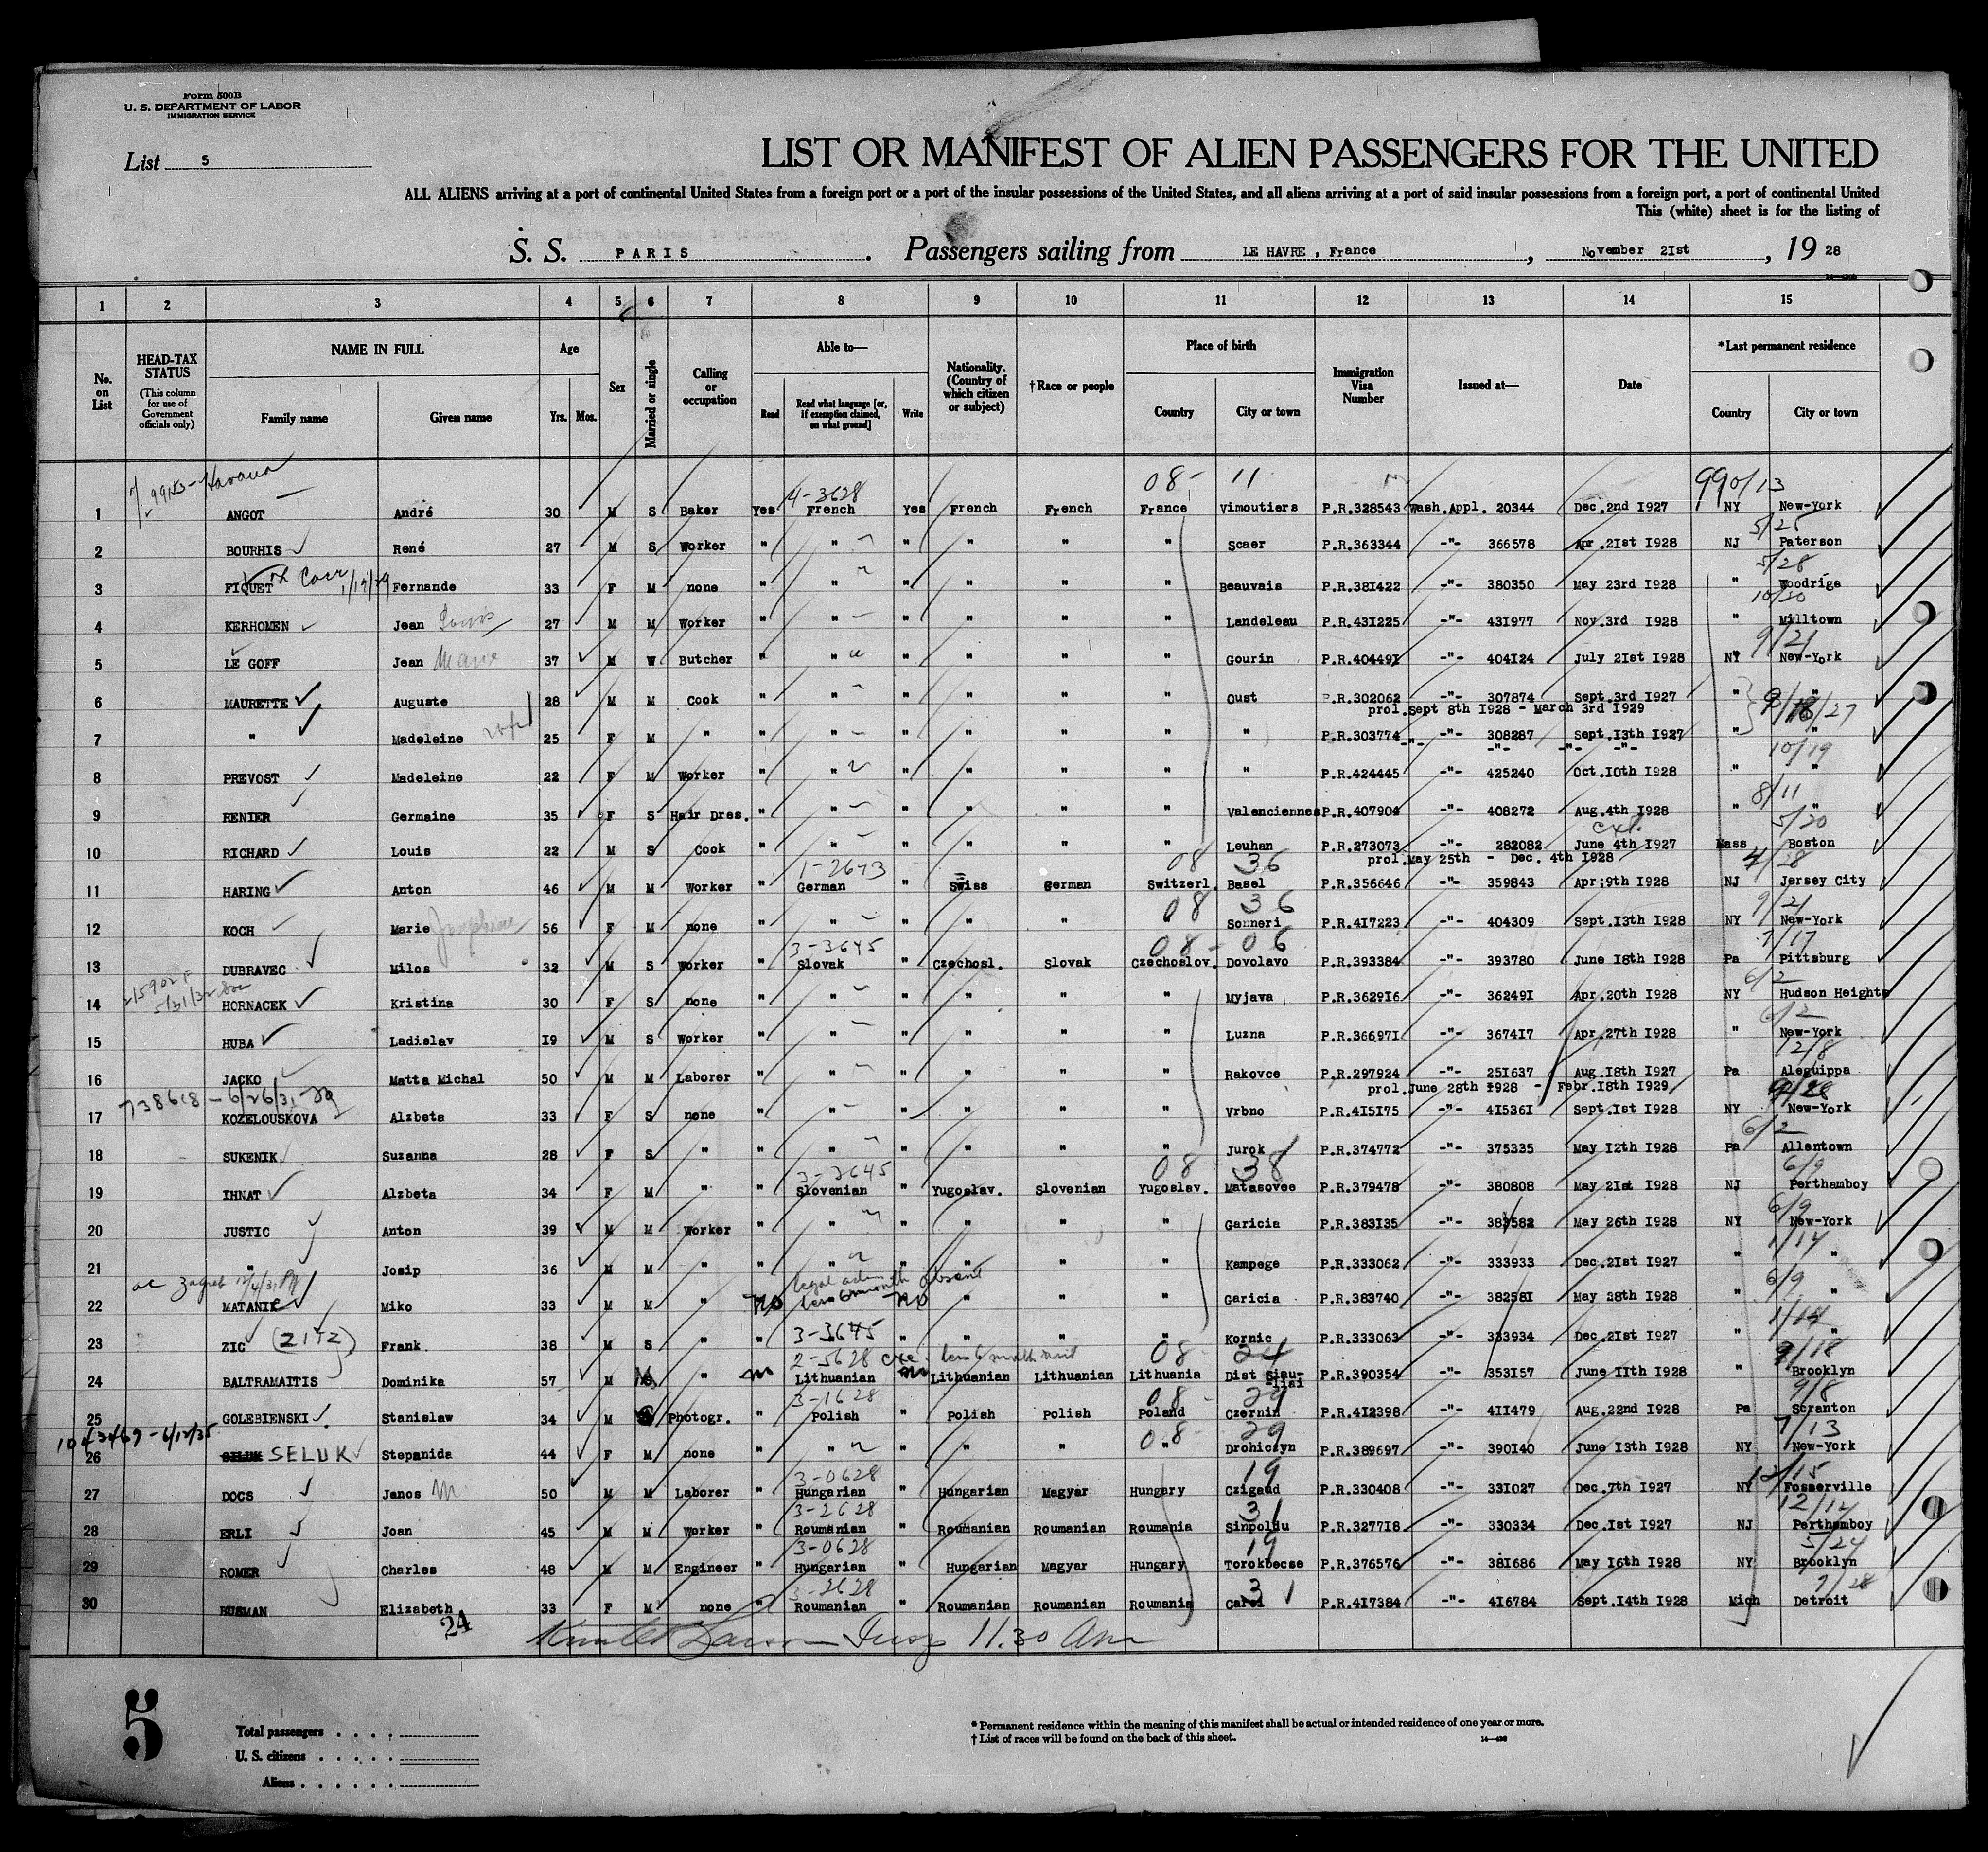 Form 500B
U. S. DEPARTMENT OF LABOR
IMMIGRATION SERVICE
List 5
LIST OR MANIFEST OF ALIEN PASSENGERS FOR THE UNITED
ALL ALIENS arriving at a port of continental United States from a foreign port or a port of the insular possessions of the United States, and all aliens arriving at a port of said insular possessions from a foreign port, a port of continental United
This (white) sheet is for the listing of
S. S. PARIS. Passengers sailing from LE HAVRE, France, November 21st, 1928
1 2 3 4 5 6 7 8 9 10 11 12 13 14 15
No. on List HEAD-TAX STATUS (This column for use of Government officials only) NAME IN FULL Family name Given name Age Yrs. Mos. Sex Married or single Calling or occupation Able to— Read Read what language [or, if exemption claimed, on what ground] Write Nationality. (Country of which citizen or subject) †Race or people Place of birth Country City or town Immigration Visa Number Issued at— Date *Last permanent residence Country City or town
99153-Havana 4-3628 08- 11 990/13
1 ANGOT André 30 M S Baker Yes French Yes French French France Vimoutiers P.R.328543 Wash.Appl. 20344 Dec.2nd I927 NY New-York
5/25
2 BOURHIS René 27 M S Worker " " " " " " Scaer P.R.363344 -"- 366578 Apr.21st I928 NJ Paterson
5/28
3 FIQUET 1/19/29 Fernande 33 F M none " " " " " " Beauvais P.R.381422 -"- 380350 May 23rd I928 " Woodrige
10/30
4 KERHOMEN Jean Louis 27 M M Worker " " " " " " Landeleau P.R.431225 -"- 431977 Nov.3rd I928 " Milltown
9/21
5 LE GOFF Jean Marie 37 M W Butcher " " " " " " Gourin P.R.404491 -"- 404124 July 21st I928 NY New-York
6 MAURETTE Auguste 28 M M Cook " " " " " " Oust P.R.302062 -"- 307874 Sept.3rd I927 " "
prol.Sept 8th I928 - March 3rd I929
7 " Madeleine wife 25 F M " " " " " " " " P.R.303774 -"- 308287 Sept.I3th I927 " "
-"- -"- -"- -"-
10/19
8 PREVOST Madeleine 22 F M Worker " " " " " " " P.R.424445 -"- 425240 Oct.I0th I928 " "
8/11
9 RENIER Germaine 35 F S Hair Dres. " " " " " " Valenciennes P.R.407904 -"- 408272 Aug.4th I928 " "
ext. 5/20
10 RICHARD Louis 22 M S Cook " " " " " " Leuhan P.R.273073 -"- 282082 June 4th I927 Mass Boston
prol.May 25th - Dec. 4th I928
1-2643 08 36 4/28
11 HARING Anton 46 M M Worker " German " Swiss German Switzerl. Basel P.R.356646 -"- 359843 Apr;9th I928 NJ Jersey City
08 36 9/21
12 KOCH Marie Josephine 56 F M none " " " " " " Sonneri P.R.417223 -"- 404309 Sept.I3th I928 NY New-York
3-3645 08-06 7/17
13 DUBRAVEC Milos 32 M S Worker " Slovak " Czechosl. Slovak Czechoslov. Dovolavo P.R.393384 -"- 393780 June I8th I928 Pa Pittsburg
5/31/32 6/2
14 HORNACEK Kristina 30 F S none " " " " " " Myjava P.R.3629I6 -"- 36249I Apr.20th I928 NY Hudson Heights
6/2
15 HUBA Ladislav I9 M S Worker " " " " " " Luzna P.R.36697I -"- 3674I7 Apr.27th I928 " New-York
12/8
16 JACKO Matta Michal 50 M M Laborer " " " " " " Rakovce P.R.297924 -"- 251637 Aug.I8th I927 Pa Aleguippa
prol.June 28th I928 - Febr.I8th I929
738618 - 6/26/31
17 KOZELOUSKOVA Alzbeta 33 F S none " " " " " " Vrbno P.R.4I5I75 -"- 4I536I Sept.Ist I928 NY New-York
6/2
18 SUKENIK Suzanna 28 F S " " " " " " " Jurok P.R.374772 -"- 375335 May I2th I928 Pa Allentown
3-3645 08 38 6/9
19 IHNAT Alzbeta 34 F M " " Slovenian " Yugoslav. Slovenian Yugoslav. Matasovee P.R.379478 -"- 380808 May 2Ist I928 NJ Perthamboy
6/9
20 JUSTIC Anton 39 M M Worker " " " " " " Garicia P.R.383I35 -"- 382582 May 26th I928 NY New-York
1/14
21 " Josip 36 M M " " " " " " " Kampege P.R.333062 -"- 333933 Dec.2Ist I927 " "
Zagreb 12/4/31 absent 6/9
22 MATANIC Miko 33 M M " no less 6 month no " " " Garicia P.R.383740 -"- 38258I May 28th I928 " "
3-3645 1/14
23 ZIC (ZITZ) Frank. 38 M S " " " " " " Kornic P.R.333063 -"- 333934 Dec.2Ist I927 " "
2-5628 08 24 9/18
24 BALTRAMAITIS Dominika 57 M " Lithuanian Lithuanian Lithuanian Lithuania Dist Siau-liai P.R.390354 -"- 353I57 June IIth I928 " Brooklyn
3-1628 08- 29 9/8
25 GOLEBIENSKI Stanislaw 34 M S Photogr. " Polish " Polish Polish Poland Czernin P.R.4I2398 -"- 4II479 Aug.22nd I928 Pa Scranton
6/12/35 08- 29 7/13
26 SELUK Stepanida 44 F M none " " " " " " Drohiczyn P.R.389697 -"- 390I40 June I3th I928 NY New-York
3-0628 19 12/15
27 DOCS Janos 50 M M Laborer " Hungarian " Hungarian Magyar Hungary Czigand P.R.330408 -"- 33I027 Dec.7th I927 NY Fosserville
3-2628 31 12/12
28 ERLI Joan 45 M M Worker " Roumanian " Roumanian Roumanian Roumania Sinpoldu P.R.3277I8 -"- 330334 Dec.Ist I927 NJ Perthamboy
3-0628 19 5/24
29 ROMER Charles 48 M M Engineer " Hungarian " Hungarian Magyar Hungary Torokbecse P.R.376576 -"- 38I686 May I6th I928 NY Brooklyn
3-2628 31 7/28
30 BUSMAN Elizabeth 33 F M none " Roumanian " Roumanian Roumanian Roumania Carol P.R.4I7384 -"- 4I6784 Sept.I4th I928 Mich Detroit
24 Larson Insp 11.30 Am
5
Total passengers
U. S. citizens
Aliens
* Permanent residence within the meaning of this manifest shall be actual or intended residence of one year or more.
† List of races will be found on the back of this sheet.